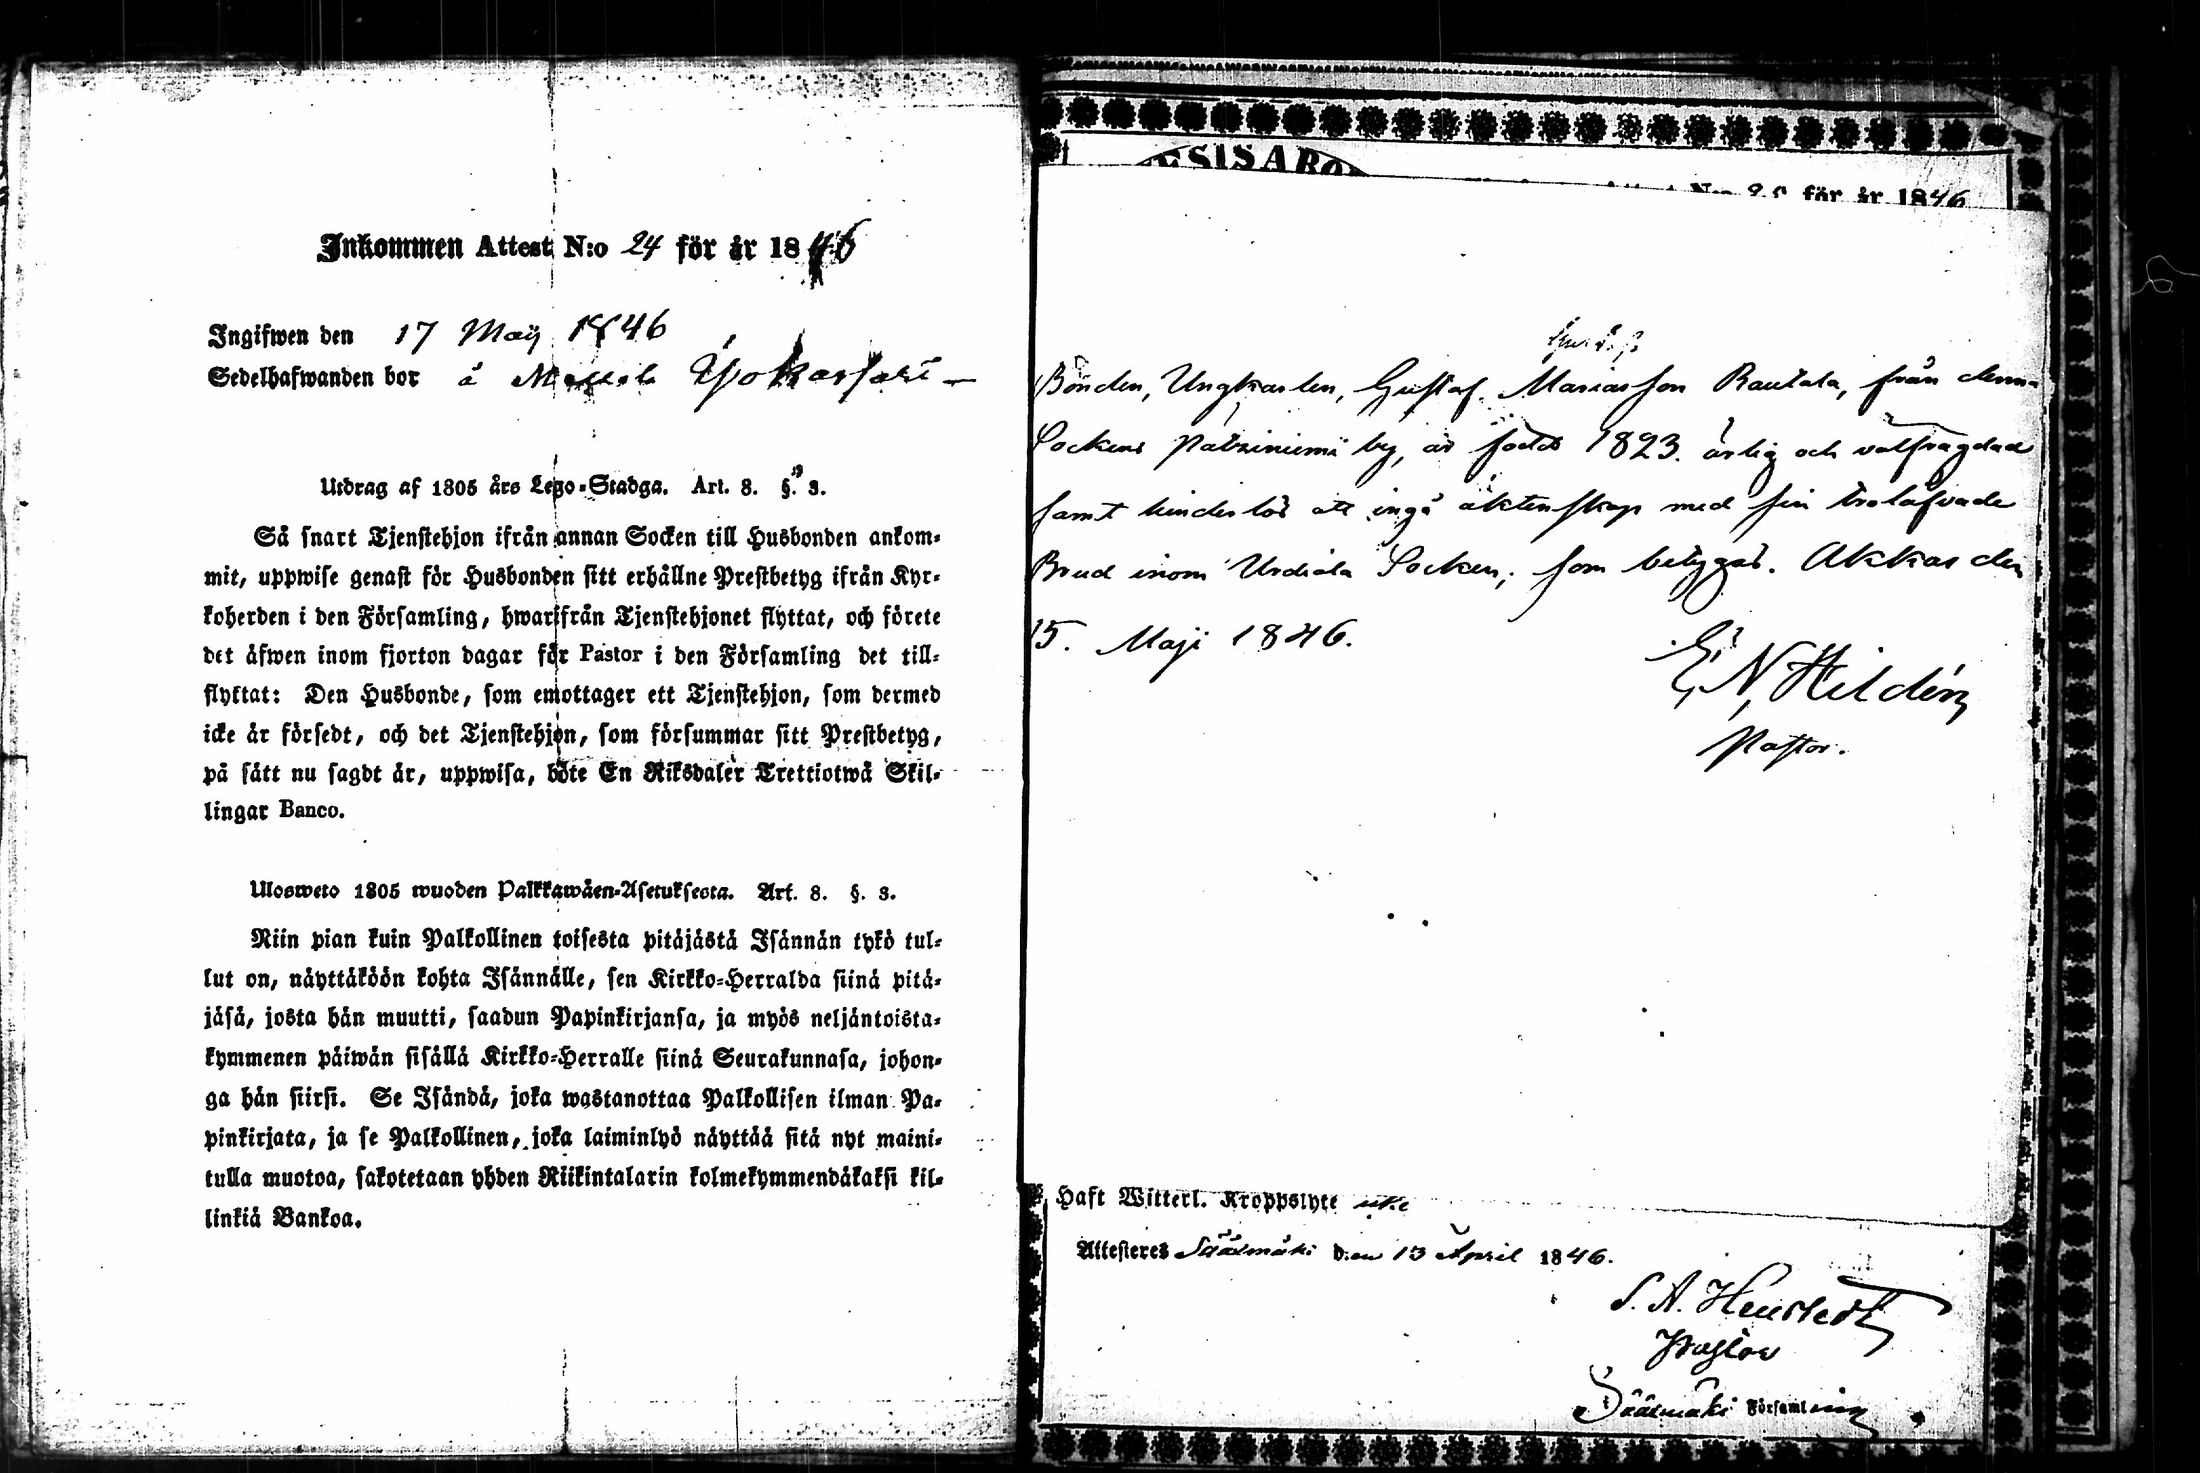 Inkommen Attest N:o 24 för år 1846
Ingifwen den 17 Maij 1846
Sedelhafwanden bor å
Utdrag af 1805 års Lego-Stadga. Art. 8. §. 3.
Så snart Tjenstehjon ifrån annan Socken till Husbonden ankom-
mit, uppwise genast för Husbonden sitt erhållne Prestbetyg ifrån Kyr-
koherden i den Församling, hwarifrån Tjenstehjonet flyttat, och förete
det äfwen inom fjorton dagar för Pastor i den Församling det till-
flyttat: Den Husbonde, som emottager ett Tjenstehjon, som dermed
icke är försedt, och det Tjenstehjon, som försummar sitt Prestbetyg,
på sätt nu sagdt är, uppwisa, böte En Riksdaler Trettiotwå Skil-
lingar Banco.
Ulosweto 1805 wuoden Palkkawäen-Asetuksesta. Art. 8. §. 3.
Niin pian kuin Palkollinen toisesta pitäjästä Isännän tykö tul-
lut on, näyttäköön kohta Isännälle, sen Kirkko-Herralda siinä pitä-
jäsä, josta hän muutti, saadun Papinkirjansa, ja myös neljäntoista-
kymmenen päiwän sisällä Kirkko-Herralle siinä Seurakunnasa, johon-
ga hän siirsi. Se Isändä, joka wastanottaa Palkollisen ilman Pa-
pinkirjata, ja se Palkollinen, joka laiminlyö näyttää sitä nyt maini-
tulla muotoa, sakotetaan yhden Riikintalarin kolmekymmendäkaksi kil-
linkiä Bankoa.
för år 1846
Bonden, Ungkarlen, Gustaf Mariasson Rautala, från denna
Sockens by, är född 1823. ärlig och välfrägdad
samt hinderlös att ingå äktenskap med sin trolofvade
Brud inom Urdiala Socken; som betygas. Akkas den
15. Maji 1846.
E, N, Hildén
Pastor.
Haft Witterl. Kroppslyte
Attesteres Sääxmäki den 13 April 1846.
S. A.
Pastor
Sääxmäki Församling